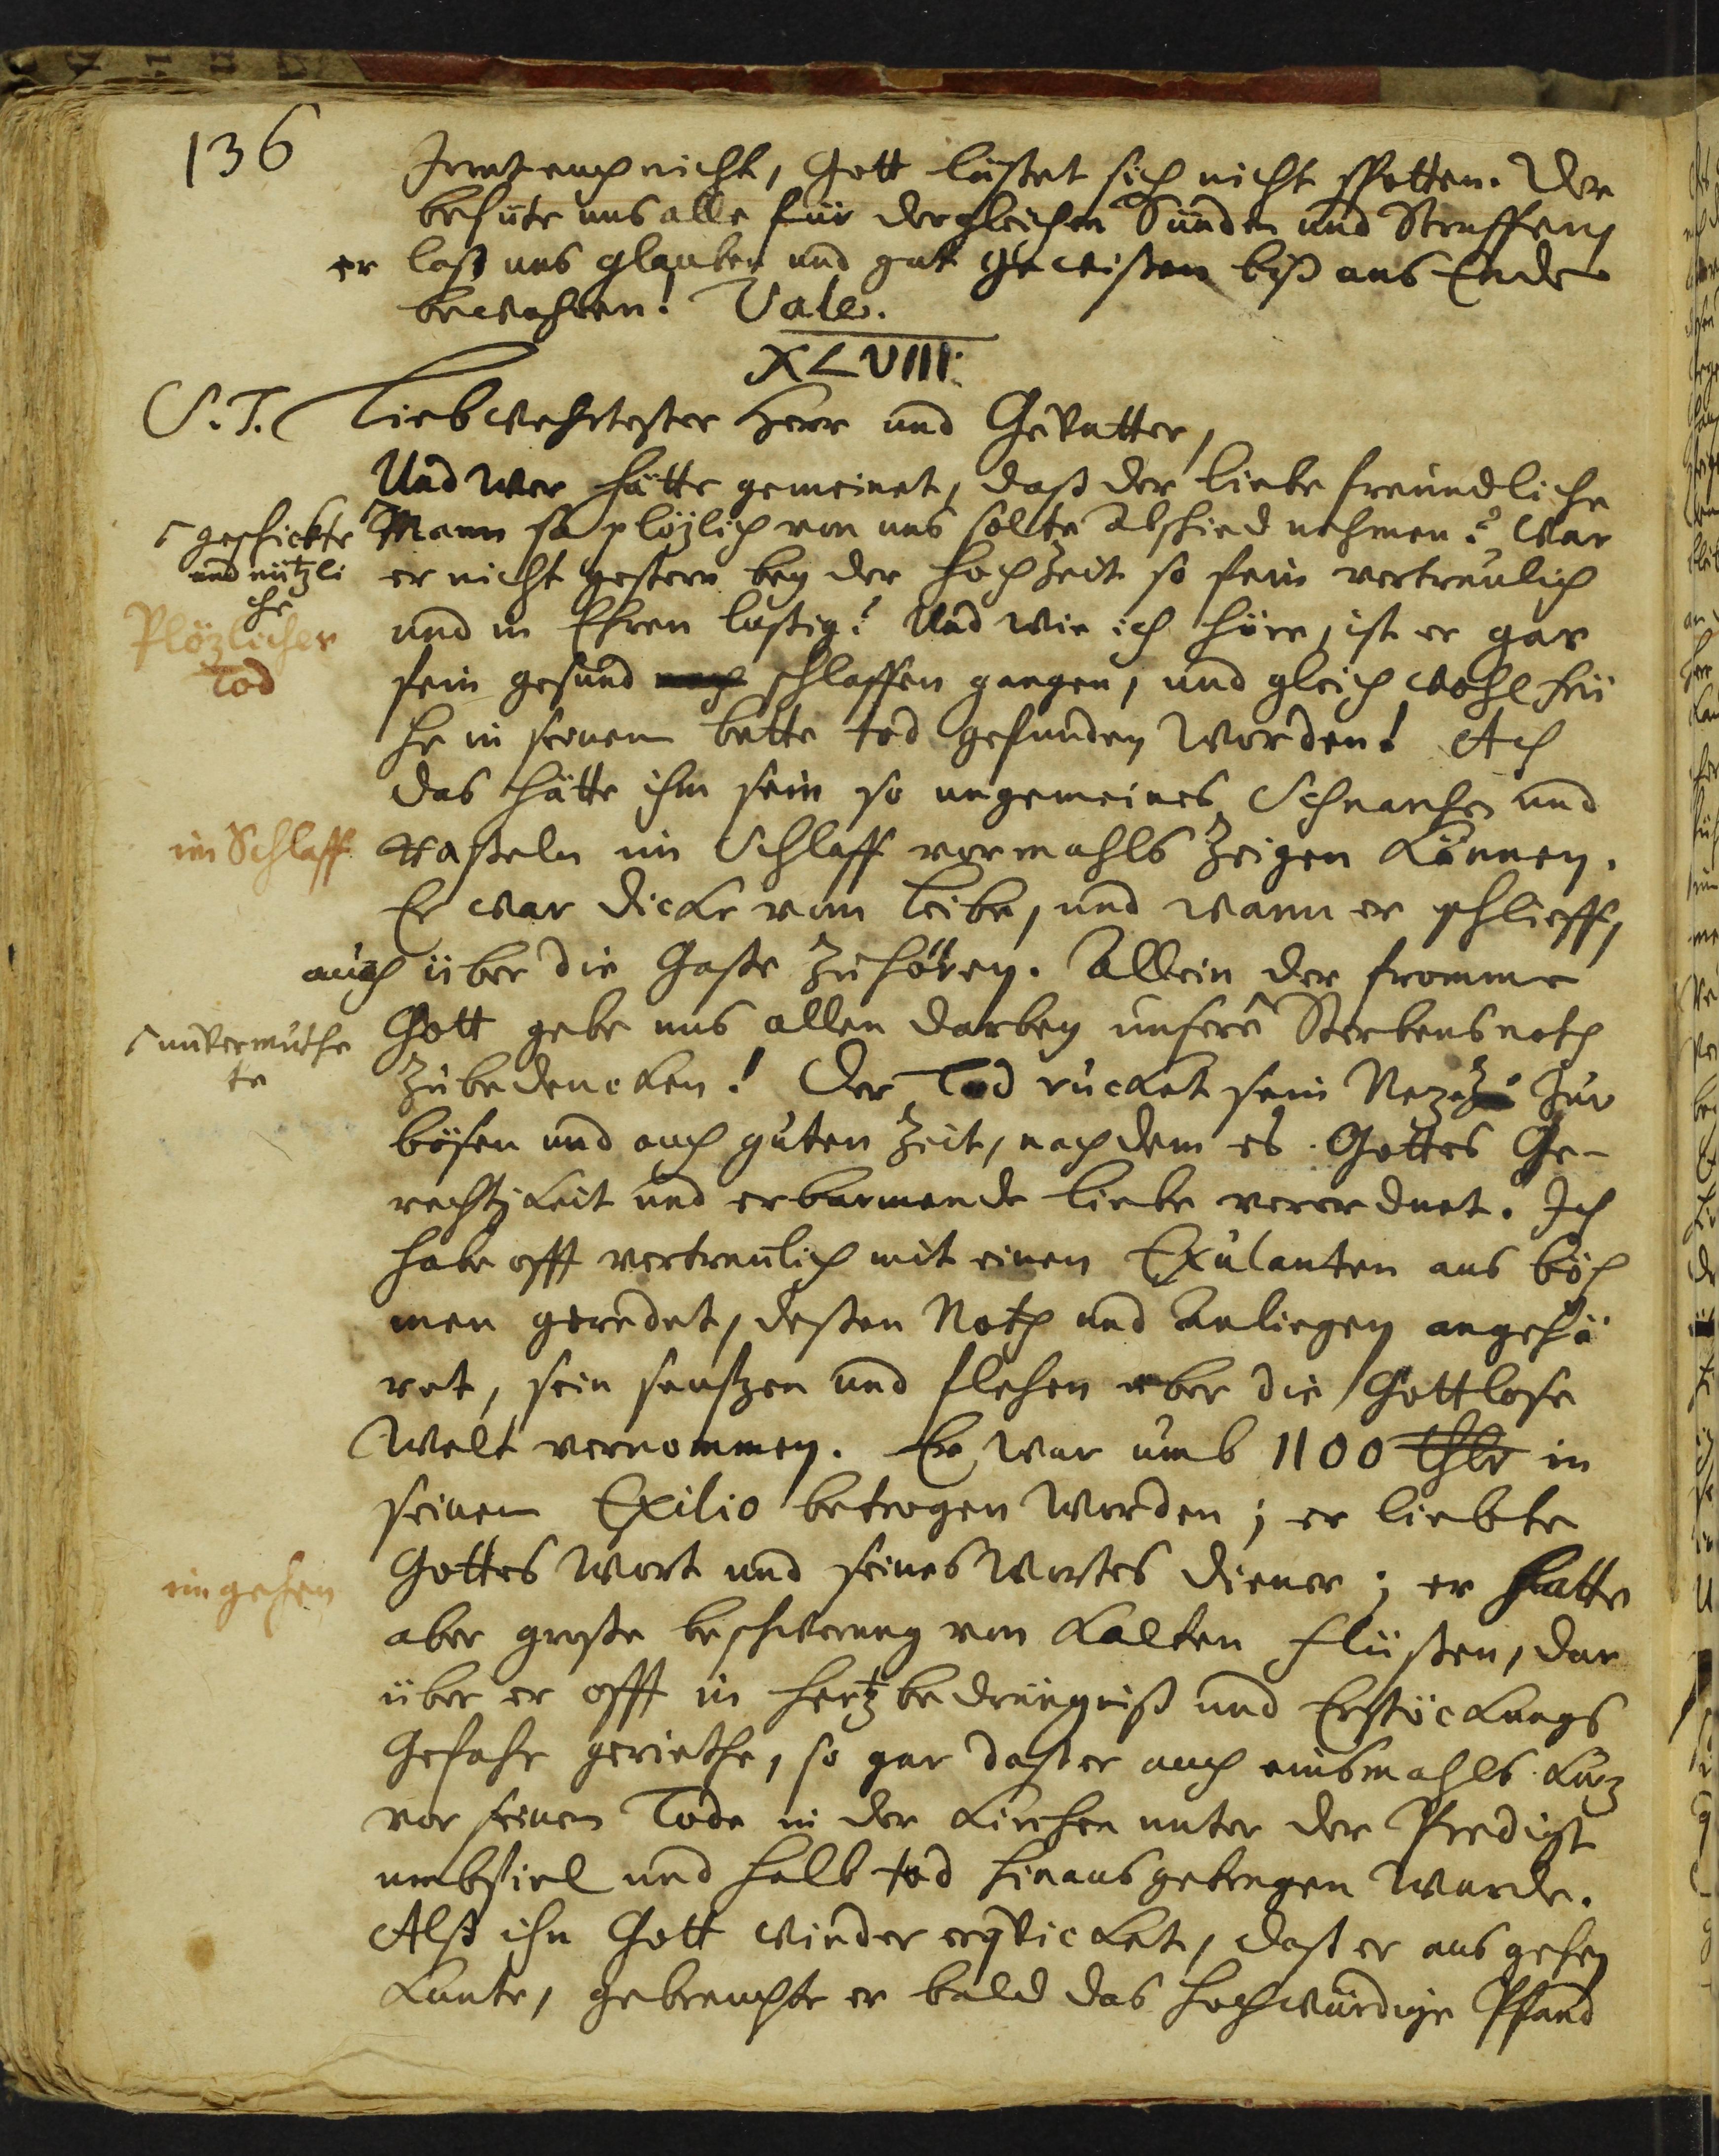 136
Irret euch nicht, Gott läßet sich nicht spotten. Der
behüte uns alle für dergleichen Sünden und Straffen,
er laß uns glauben und gut Gewißen biß ans Ende
bewahren! Vale.
XLVIII.
S. T. Liebwehrtester Herr und Gevatter,
Und wer hätte gemeinet, daß der liebe freundliche
geschickte
und nützli
che
Mann so plözlich von uns solte Abschied nehmen? War
er nicht gestern bey der Hochzeit so fein vertreulich
Plözlicher
Tod
und in Ehren lustig? Und wie ich höre, ist er gar
fein gesund schlaffen gangen, und gleich wohl frü
he in seinem bette tod gefunden worden! Ach
das hätte ihm sein so ungemeines Schnarchen und
im Schlaff
Raßeln im Schlaff vormahls zeigen können.
Er war dicke vom Leibe, und wann er schlieff,
auch über die Gaße zuhören. Allein der fromme
Gott gebe uns allen darbey unsere Sterbensnoth
unvermuthe
te
zubedencken! Der Tod rucket sein Nez zu zur
bösen und auch guten Zeit, nach dem es Gottes Ge-
rechtigkeit und erbarmende Liebe verordnet. Ich
habe offt vertreulich mit einen Exulanten aus böh
men geredet, deßen Noth und Anliegen angehö
ret, sein seufzen und flehen uber die Gottlose
Welt vernommen. Er war umb 1100 Thlr in
seinem Exilio betrogen worden; er liebte
Gottes Wort und seines Wortes Diener; er hatte
im gehen
aber große beschwerung von kalten Flüßen, dar
über er offt in Hertzbedrängniß und Erstöckungs
Gefahr geriethe, so gar daß er auch einsmahls kurz
vor seinem Tode in der Kirchen unter der Predigt
umbfiel und halb tod hinausgetragen wurde.
Alß ihn Gott wieder erqvicket, daß er aus gehen
kunte, gebrauchte er bald das Hochwürdige Pfand